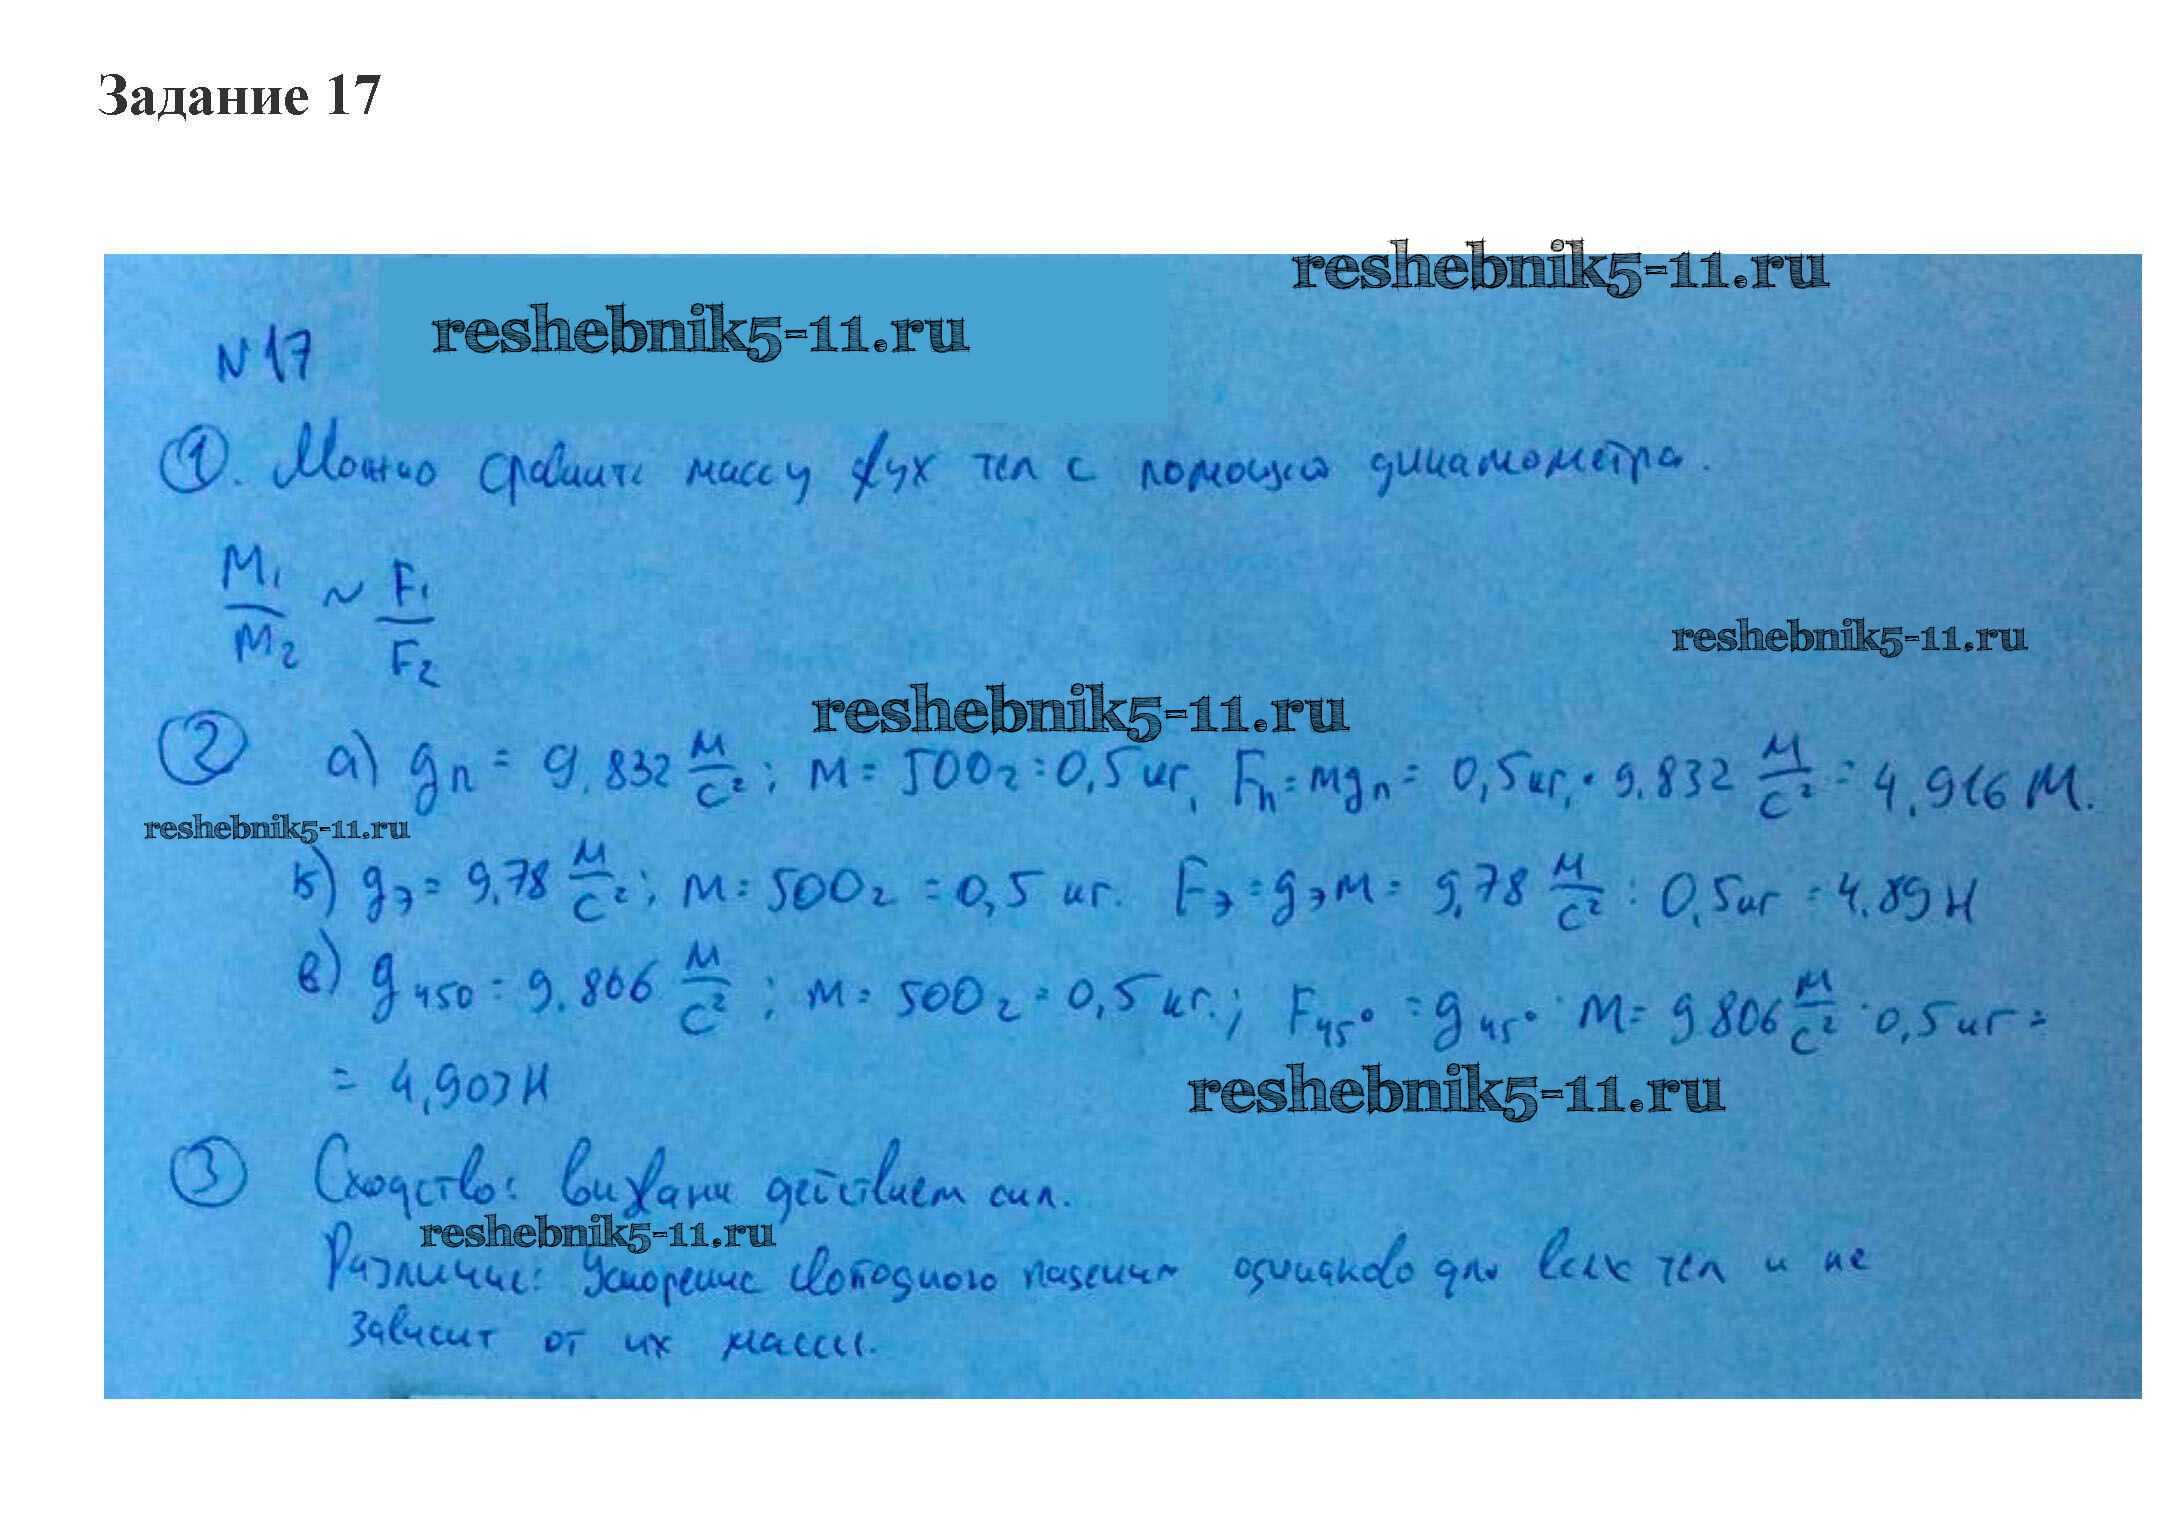 Задание 17
reshebnik5-11.ru
reshebnik5-11.ru
N 17
①. Можно сравнить массу двух тел с помощью динамометра.
M₁/M₂ ~ F₁/F₂
reshebnik5-11.ru
reshebnik5-11.ru
② а) gп = 9.832 м/с²; м = 500г = 0,5 кг, Fп = mgп = 0,5кг. · 9.832 м/с² = 4,916 М.
reshebnik5-11.ru
б) gэ = 9,78 м/с²; м = 500г = 0,5 кг. Fэ = gэм = 9,78 м/с² : 0,5кг = 4.89 Н
в) g450 = 9.806 м/с²; м = 500г = 0,5 кг.; F45° = g45° · м = 9 806 м/с² · 0,5 кг =
= 4,903 Н
reshebnik5-11.ru
③ Сходство: вызваны действием сил.
reshebnik5-11.ru
Различие: Ускорение свободного падения одинаково для всех тел и не
зависит от их массы.